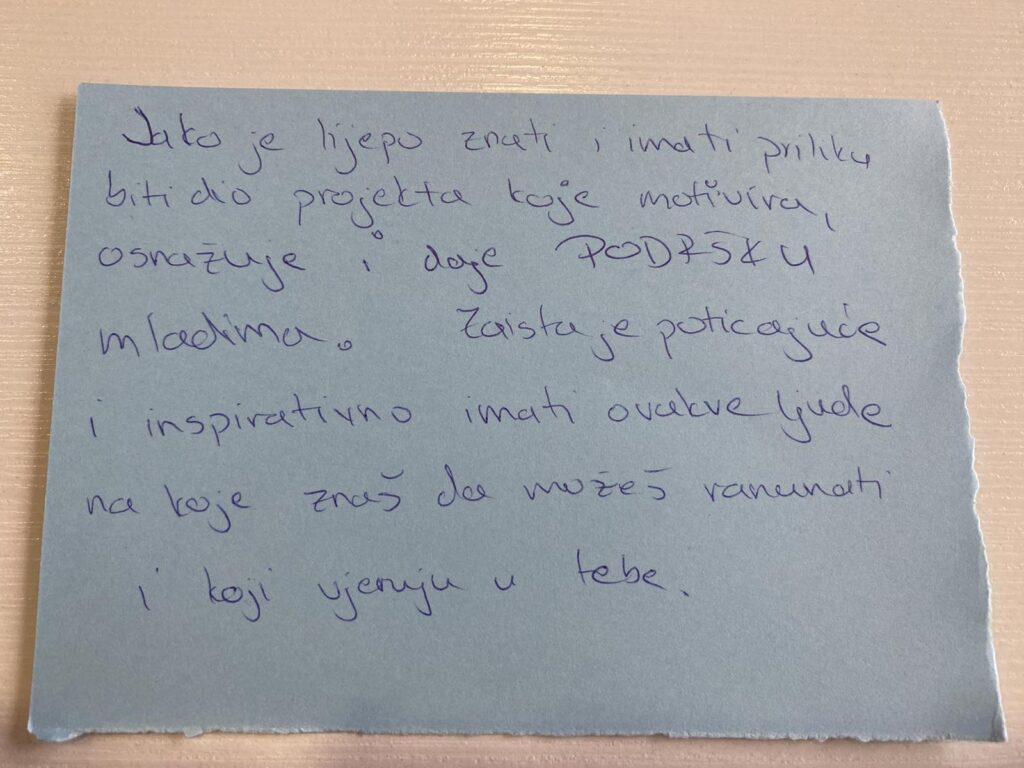 Jako je lijepo znati i imati priliku
biti dio projekta koje motivira,
osnažuje i daje PODRŠKU
mladima. Zaista je poticajuće
i inspirativno imati ovakve ljude
na koje znaš da možeš računati
i koji vjeruju u tebe.